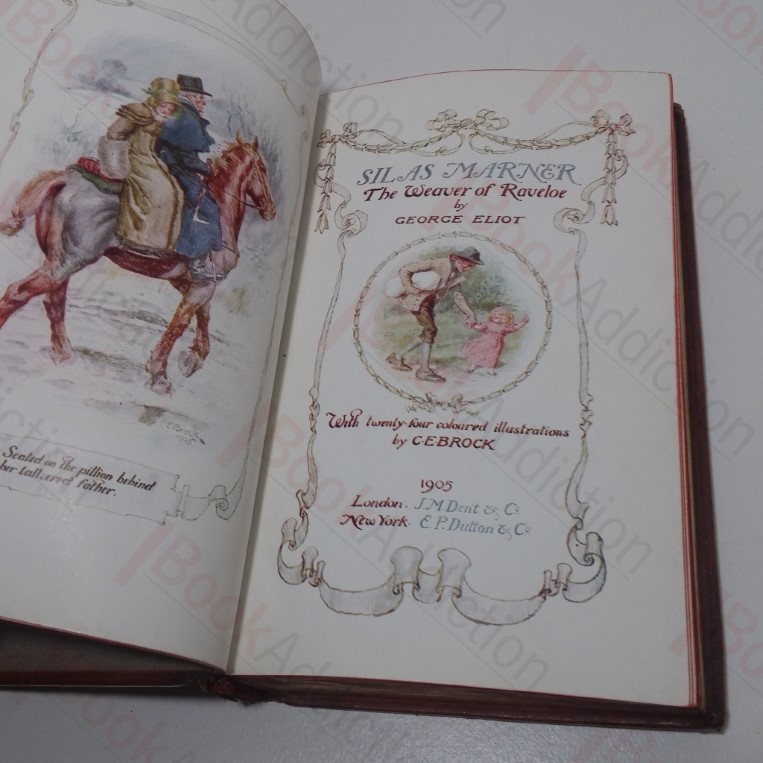 Seated on the pillion behind
her tall, erect father.
C E Brock
SILAS MARNER
The Weaver of Raveloe
by
GEORGE ELIOT
With twenty-four coloured illustrations
by C·E·BROCK
1905
London. J. M. Dent & Co
New York. E. P. Dutton & Co
BookAddiction